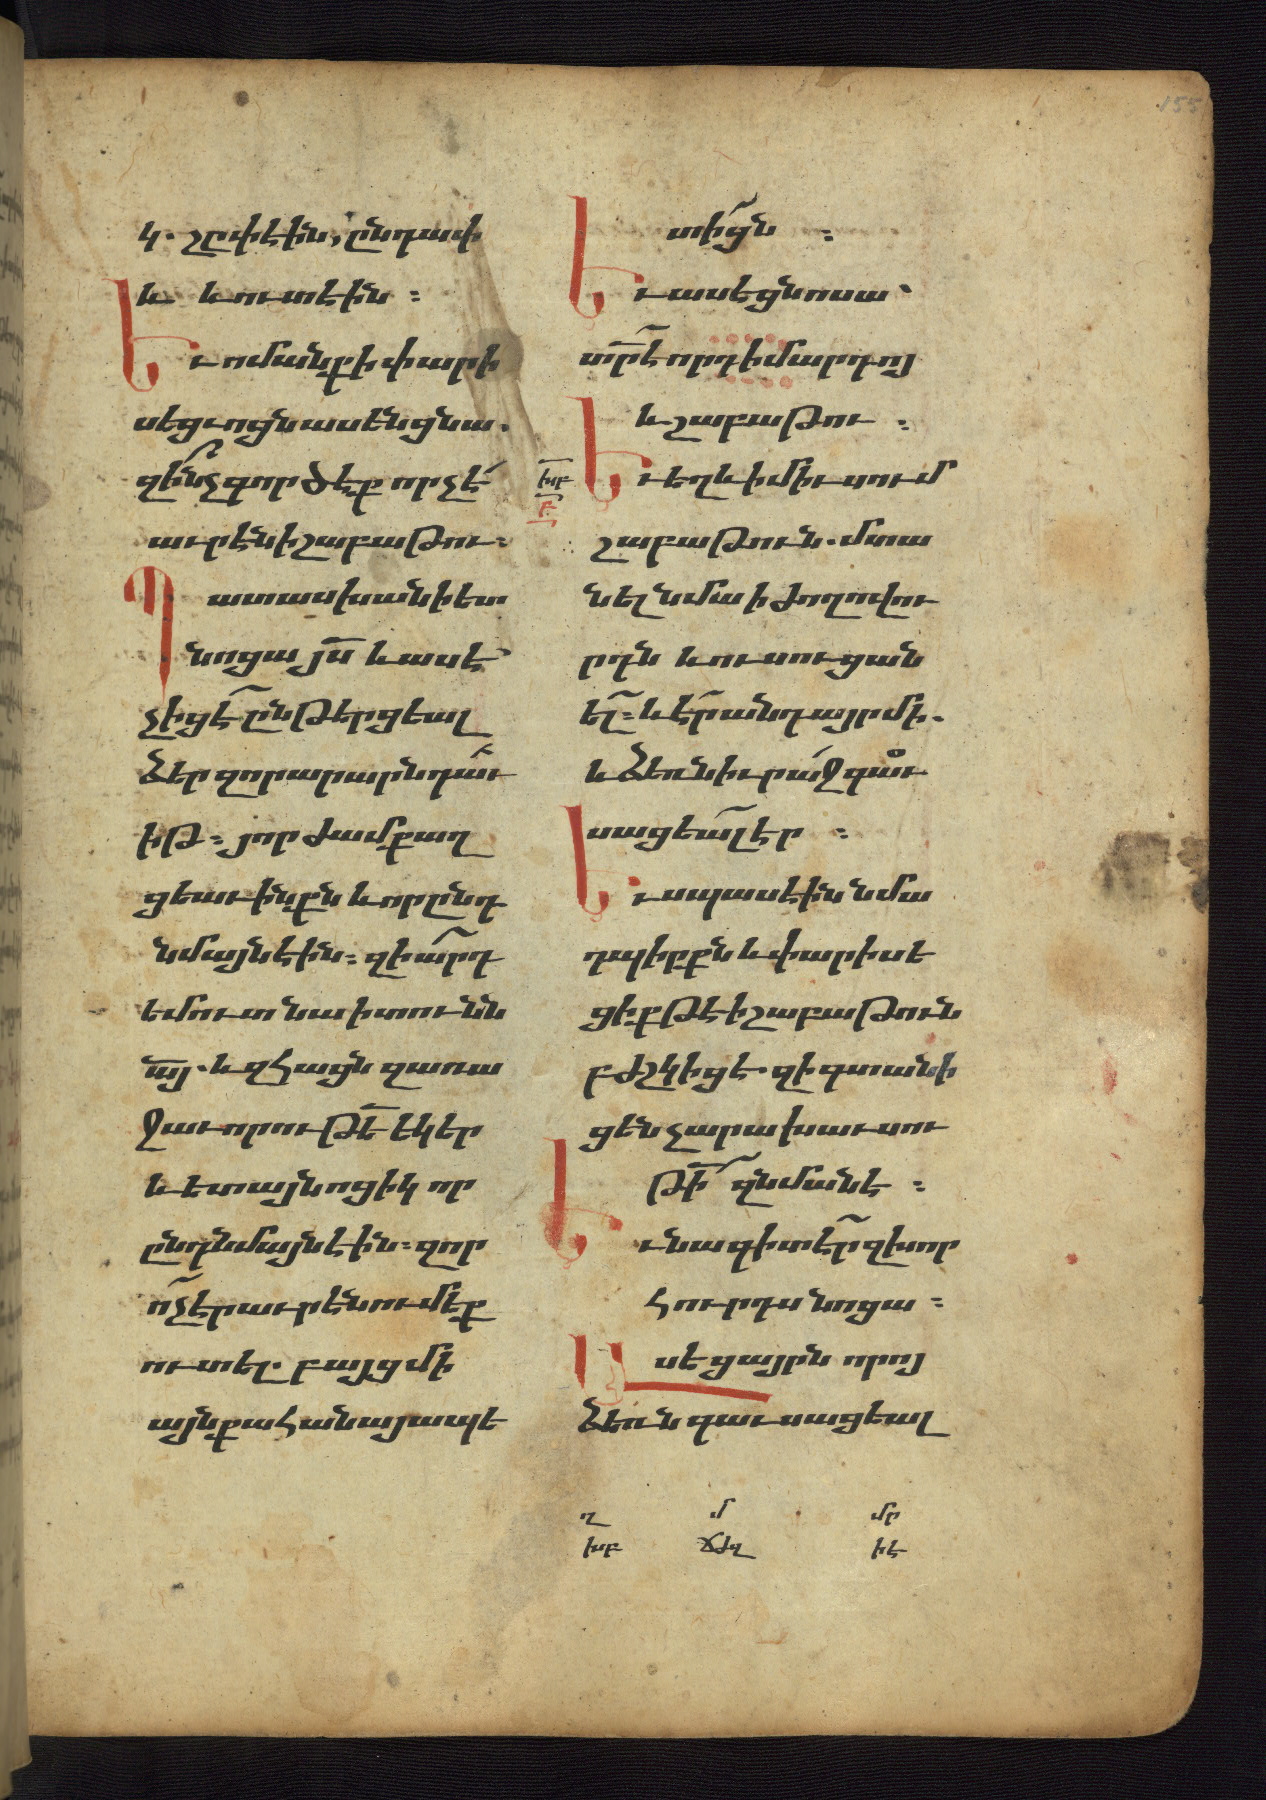 կ. շըփէին, ընդափ
և և ուտէին :
Եւ ոմանք ի փարի
սեցւոցն ասէն ցնա.
զի՞նչ գործէք որ չէ՛
աւրէն ի շաբաթու :
Պատասխանի ետ
նոցա յս̄ և ասէ՝
չիցէ՞ ընթերցեալ
ձեր զոր արարն դաւ
իթ : յորժամ քաղ
ցեաւ ինքն և որ ընդ
նմայն էին : զիա՞րդ
եմուտ նա ի տունն
ա̄յ. և զհացն զառա
ջաւորութե̄ եկեր
և ետ այնոցիկ որ
ընդ նմայն էին : զոր
ո՛չ էր աւրէն ումէք
ուտել. բայց մի
այն քահանայապե
տիցն :
Եւ ասէ ցնոսա՝
տր̄ է որդի մարդոյ
և շաբաթու :
խբ
բ
Եւ եղև ի միւսում
շաբաթուն. մտա
նել նմա ի ժողովու
րդն և ուսուցան
ել : և է՛ր անդ այր մի.
և ձեռն իւր ա՛ջ գաւ
սացեալ էր :
Եւ սպասէին նմա
դպիրքն և փարիսե
ցիք թէ ի շաբաթուն
բժշկիցէ. զի գտանի
ցեն չարախաւսու
թի̄ զնմանէ :
Եւ նա գիտէր զխոր
հուրդս նոցա :
Ասէ ցայրն որոյ
ձեռն գաւսացեալ
ղ մ մր
խբ ճժզ իէ
155